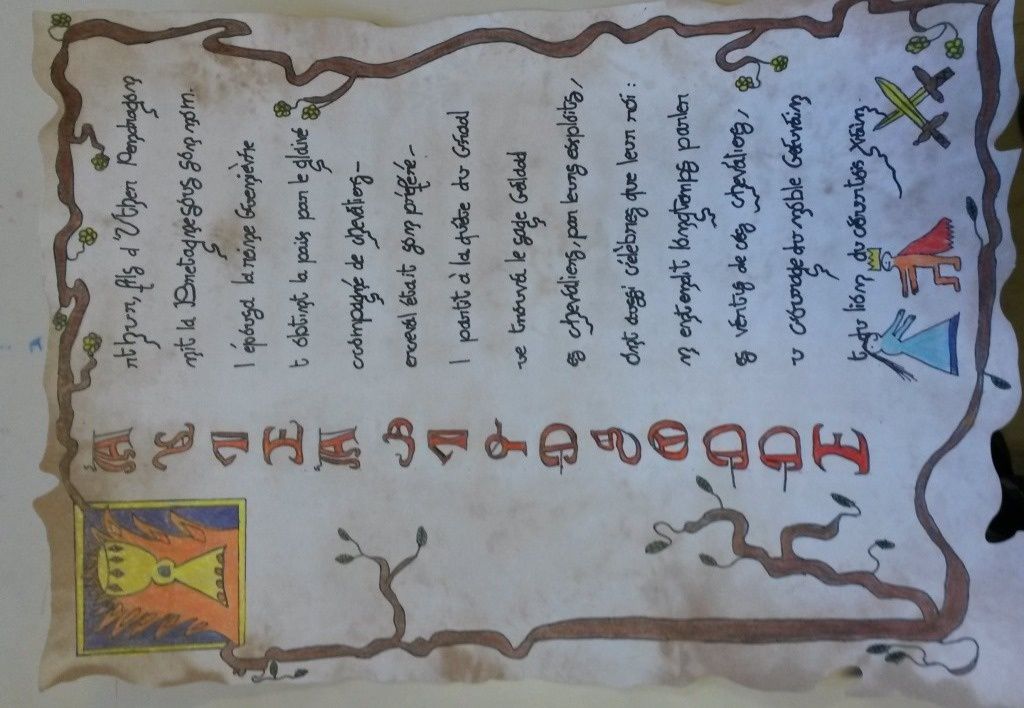 Arthur, fils d'Uther Pendragon
Unit la Bretagne sous son nom.
Il épousa la reine Guenièvre
Et obtint la paix par le glaive
Accompagné de chevaliers -
Perceval était son préféré -
Il partit à la quête du Graal
Que trouva le sage Galaad
Des chevaliers, par leurs exploits,
Sont aussi célèbres que leur roi :
On entendit longtemps parler
Des vertus de ces chevaliers,
Du courage du noble Gauvain
Et du lion du courtois Yvain.